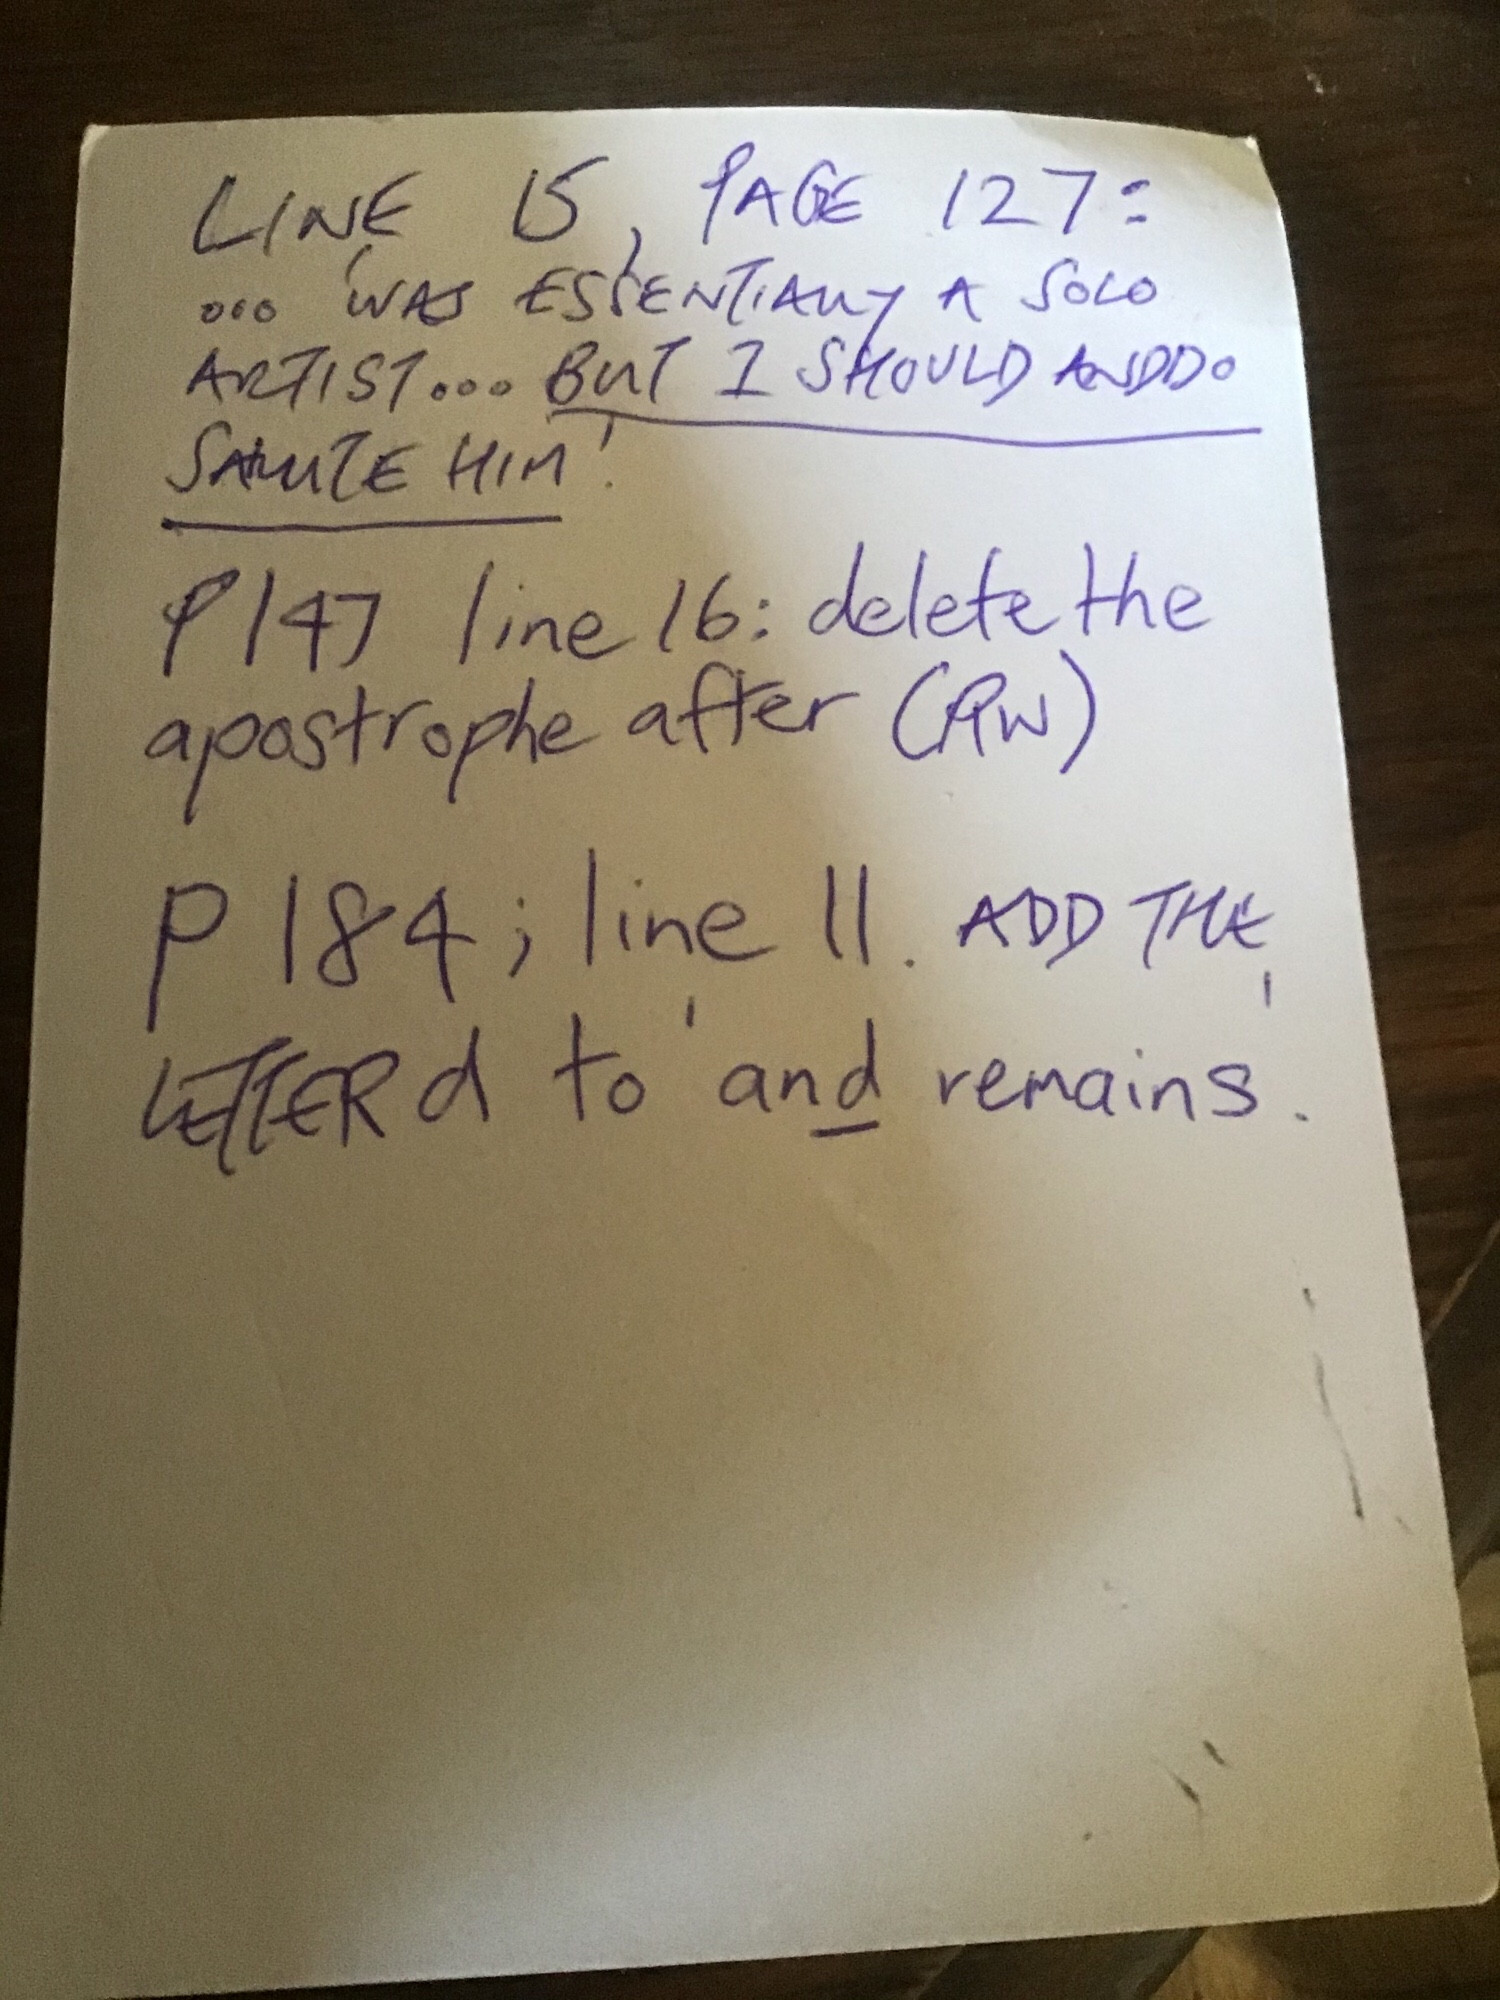 LINE 15, PAGE 127:
... 'WAS ESSENTIALLY A SOLO
ARTIST... BUT I SHOULD AND DO
SALUTE HIM'.
P147 line 16: delete the
apostrophe after (PW)
P 184; line 11. ADD THE
LETTER d to 'and remains'.